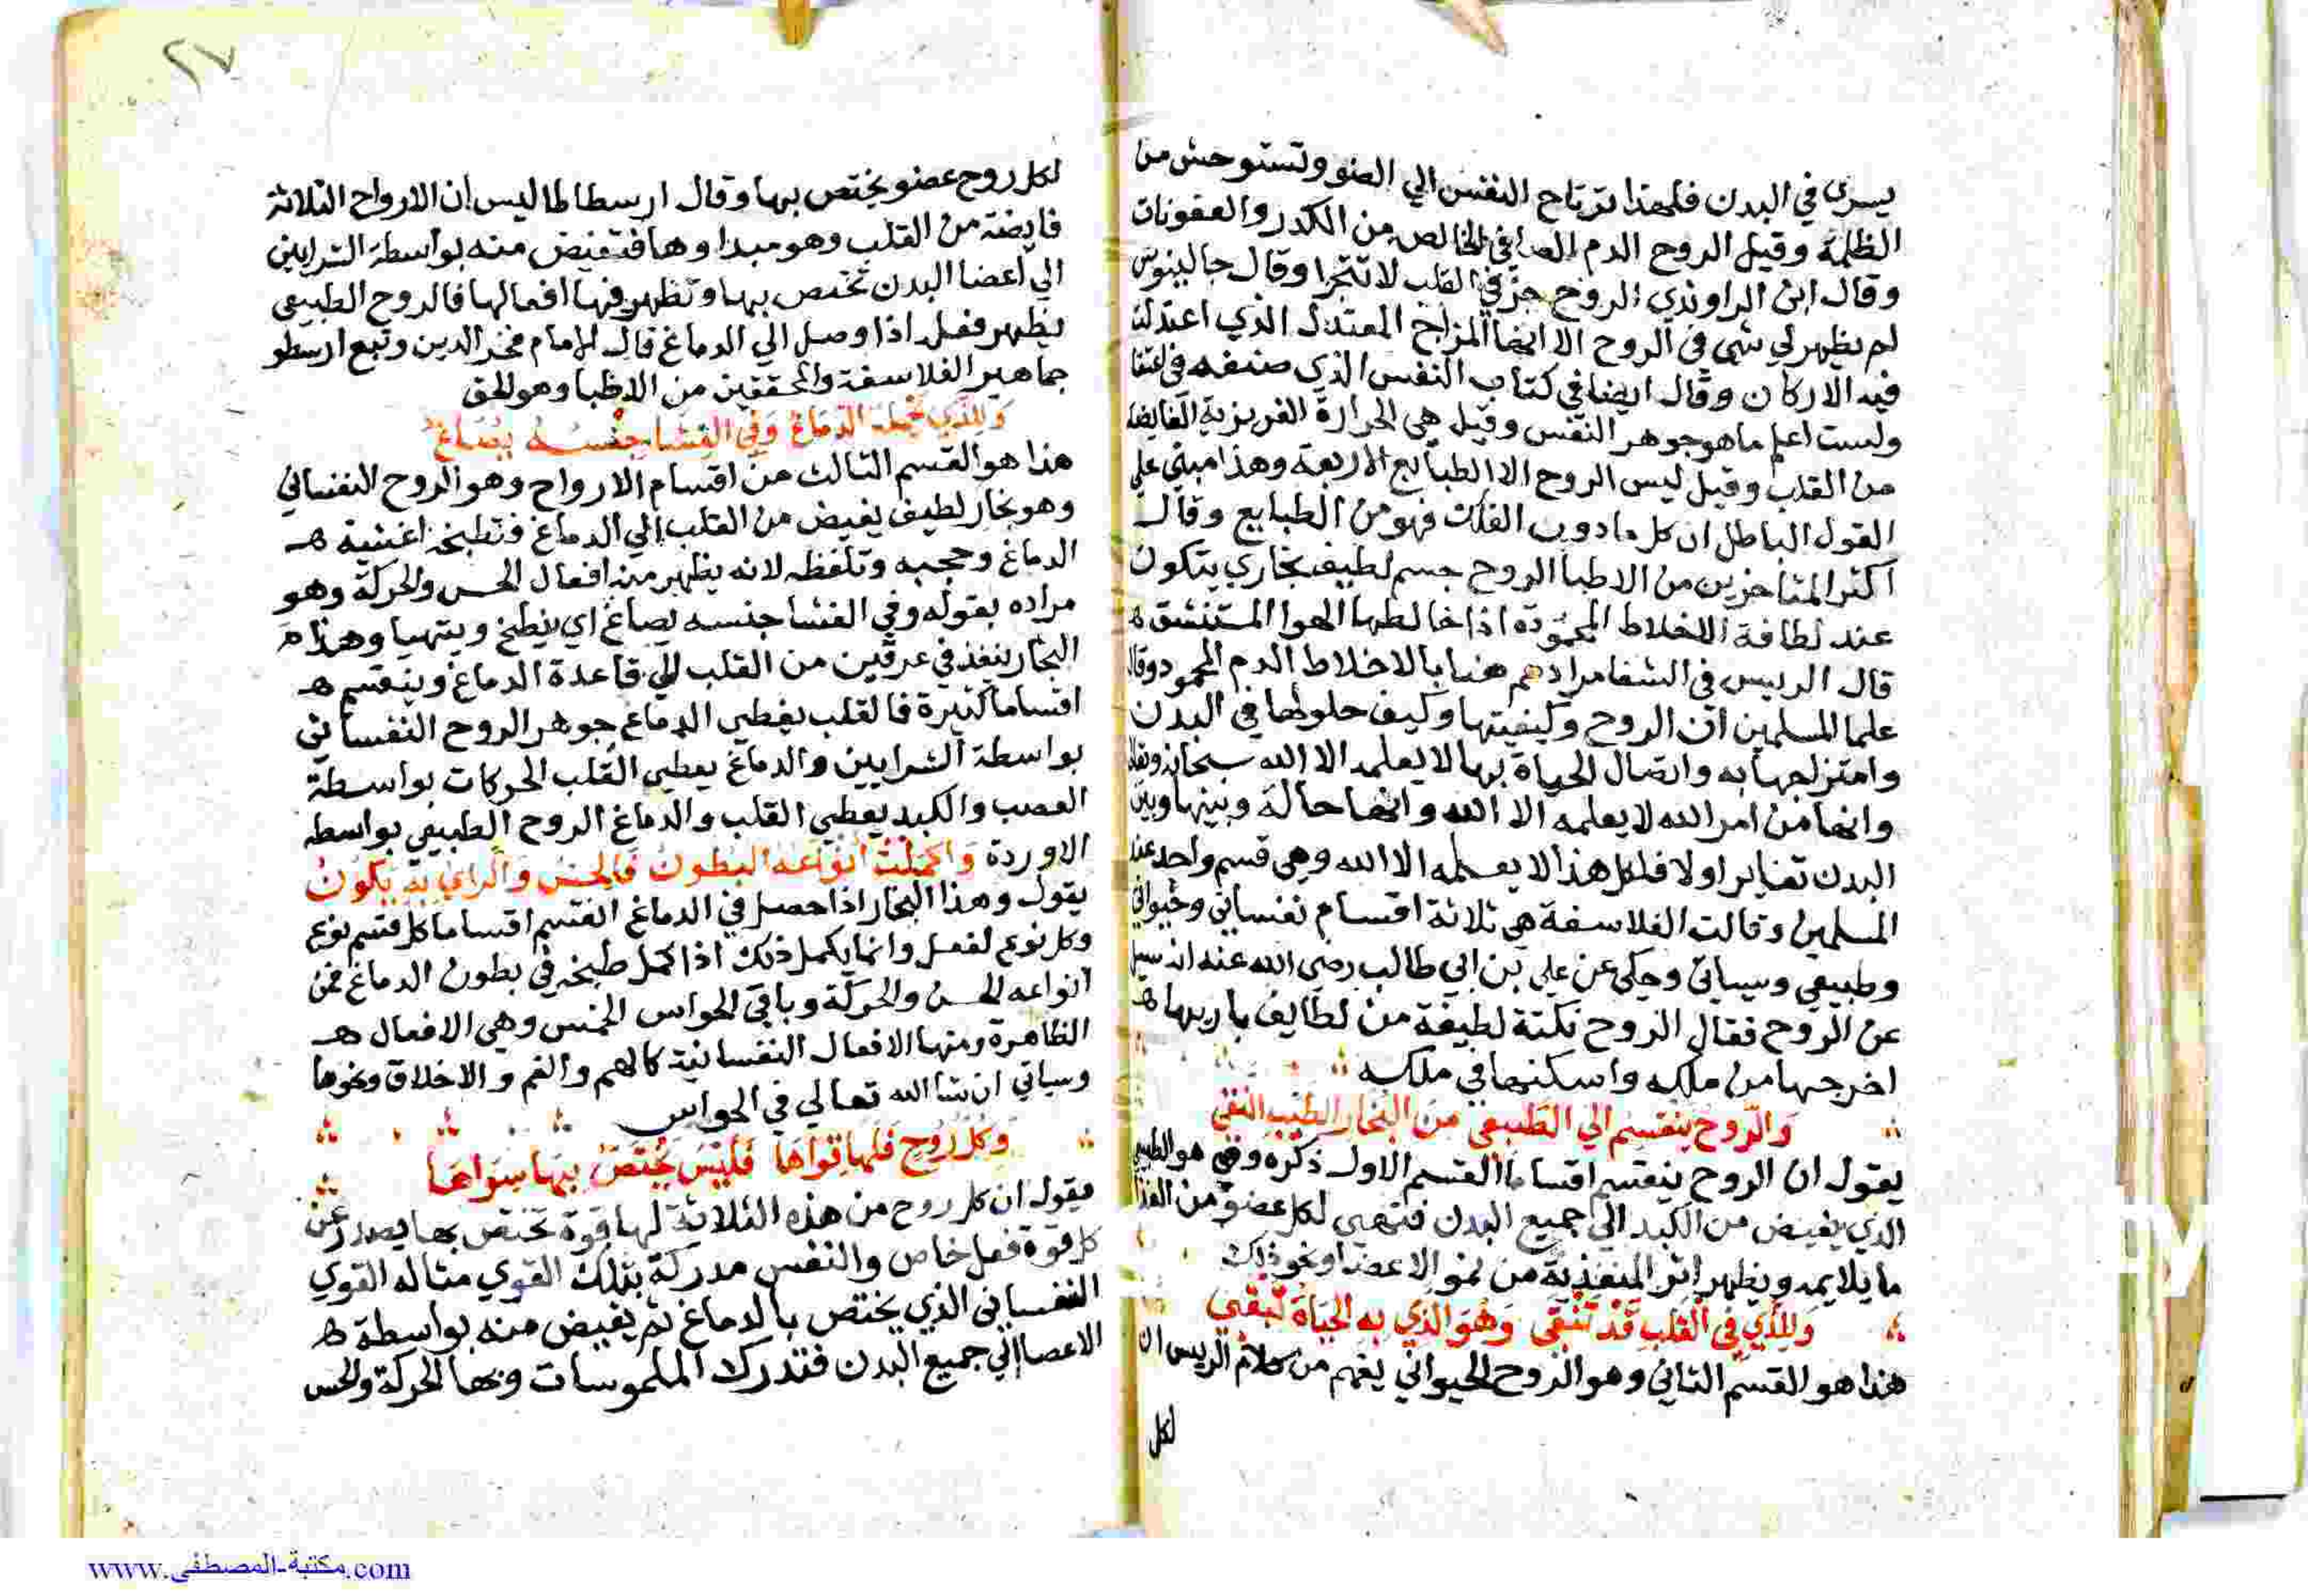 يسري في البدن فلهذا ترتاح النفس الي الضو وتستوحش من
الظلمة وقيل الروح الدم الصافي الخالص من الكدر والعفونات
وقال ابن الراوندي الروح جز في القلب لا تتجزا وقال جالينوس
لم يظهر لي شي في الروح الا انها المزاج المعتدل الذي اعتدلت
فيه الاركان وقال ايضا في كتاب النفس الذي صنفه
ولست اعلم ما هو جوهر النفس وقيل هي الحرارة الغريزية الفايضة
من القلب وقيل ليس الروح الا الطبايع الاربعة وهذا مبني علي
القول الباطل ان كل ما دون الفلك فهو من الطبايع وقال
اكثر المتاخرين من الاطبا الروح جسم لطيف بخاري يتكون
عند لطافة الاخلاط المحمودة اذا خالطها الهوا المستنشق ه
قال الرييس في الشفا مرادهم هنا بالاخلاط الدم المحمود وقال
علما المسلمين ان الروح وكيفيتها وكيف حلولها في البدن
وامتزاجها به واتصال الحياة بها لا يعلمه الا الله سبحانه وتعالي
وانها من امر الله لا يعلمه الا الله وانها حالة وبينها وبين
البدن تغاير اولا فلكل هذا لا يعلمه الا الله وهي قسم واحد عند
المسلمين وقالت الفلاسفة هي ثلاثة اقسام نفساني وحيواني
وطبيعي وسياتي وحكي عن علي بن ابي طالب رضي الله عنه انه سيل
عن الروح فقال الروح نكتة لطيفة من لطايف باريها ه
اخرجها من ملكه واسكنها في ملكه
وَالرّوح ينقسم الي الطَبيعي مِنَ البُخار الطَيّب النقي
يقول ان الروح ينقسم اقساما القسم الاول ذكره وهي هو الطبيعي
الذي يفيض من الكبد الي جميع البدن فتهيي لكل عضو من الغذا
ما يلايمه ويظهر اثر المنفذية من نمو الاعضا ونحو ذلك
وَللَّذي في القَلبِ قَد تَنْقَى وَهُوَ الَّذي به الحَيَاةُ تَبْقى
هذا هو القسم الثاني وهو الروح الحيواني يفهم من كلام الرييس ان
لكل
٢٧
لكل روح عضو يختص بها وقال ارسطاطاليس ان الارواح الثلاثة
فايضة من القلب وهو مبداوها فتفيض منه بواسطة الشرايين
الي اعضا البدن تختص بها وتظهر فيها افعالها فالروح الطبيعي
يظهر فعله اذا وصل الي الدماغ قال الامام فخر الدين وتبع ارسطو
جماهير الفلاسفة والمحققين من الاطبا وهو الحق
وَللَّذي تحمله الدمَاغ وَفي الغِشَا جِنسُهُ يُصَاغ
هذا هو القسم الثالث من اقسام الارواح وهو الروح النفساني
وهو بخار لطيف يفيض من القلب الي الدماغ فتطبخه اغشية ه
الدماغ وحجبه وتلفظه لانه يظهر منه افعال الحس والحركة وهو
مراده بقوله وفي الغشا جنسه يصاغ اي ينطبخ ويتهيا وهذا ه
البخار ينفذ في عرقين من القلب الي قاعدة الدماغ وينقسم ه
اقساما كثيرة فالقلب يعطي الدماغ جوهر الروح النفساني
بواسطة الشرايين والدماغ يعطي القلب الحركات بواسطة
العصب والكبد يعطي القلب والدماغ الروح الطبيعي بواسطه
الاوردة وَاكمَلَتْ اَنوَاعَه البُطُونُ فَالحِسُ وَالرايُ بِهِ يَكُونُ
يقول وهذا البخار اذا حصل في الدماغ انقسم اقساما كل قسم نوع
وكل نوع لفعل وانما يكمل ذلك اذا كمل طبخه في بطون الدماغ فمن
انواعه الحس والحركة وباقي الحواس الخمس وهي الافعال ه
الظاهرة ومنها الافعال النفسانية كالهم والغم والاخلاق ونحوها
وسياتي ان شا الله تعالي في الحواس
وَكُلُ رُوحٍ فَلَهَا قِوَاهَا فَلَيْسَ يُختَصُّ بِهَا سِوَاهَا
يقول ان كل روح من هذه الثلاثة لها قوة تختص بها يصدر عن
كل قوة فعل خاص والنفس مدركة بتلك القوي مثاله القوي
النفساني الذي يختص بالدماغ ثم يفيض منه بواسطة ه
الاعصاب الي جميع البدن فتدرك الملموسات وبها الحركة والحس
www.مكتبة-المصطفى.com